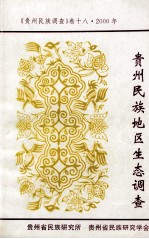 《贵州民族调查》卷十八·2000年
贵州民族地区生态调查
贵州省民族研究所　贵州省民族研究学会